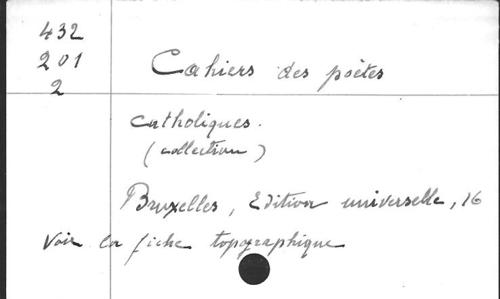 432
201
2
Cahiers des poètes
catholiques.
(collection)
Bruxelles, Edition universelle, 16
Voir la fiche topographique